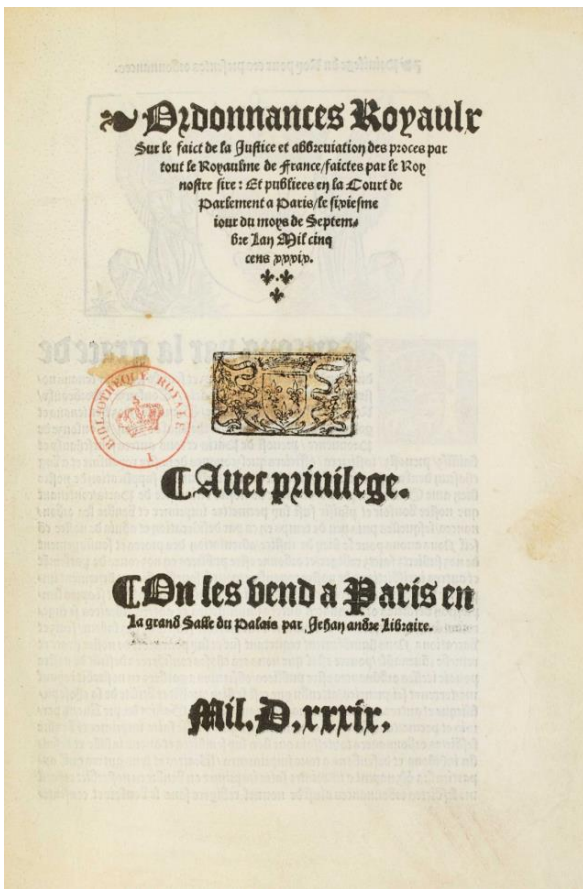 Ordonnances Royaulx
Sur le faict de la Justice et abbreviation des proces par
tout le Royaulme de France/faictes par le Roy
nostre sire : Et publiees en la Court de
Parlement a Paris/le sixiesme
iour du moys de Septem⸗
bre Lan Mil cinq
cens xxxix.
BIBLIOTHEQUE ROYALE
I
¶ Auec priuilege.
¶ On les vend a Paris en
la grand Salle du Palais par Jehan andre Libraire.
Mil.D.xxxix.